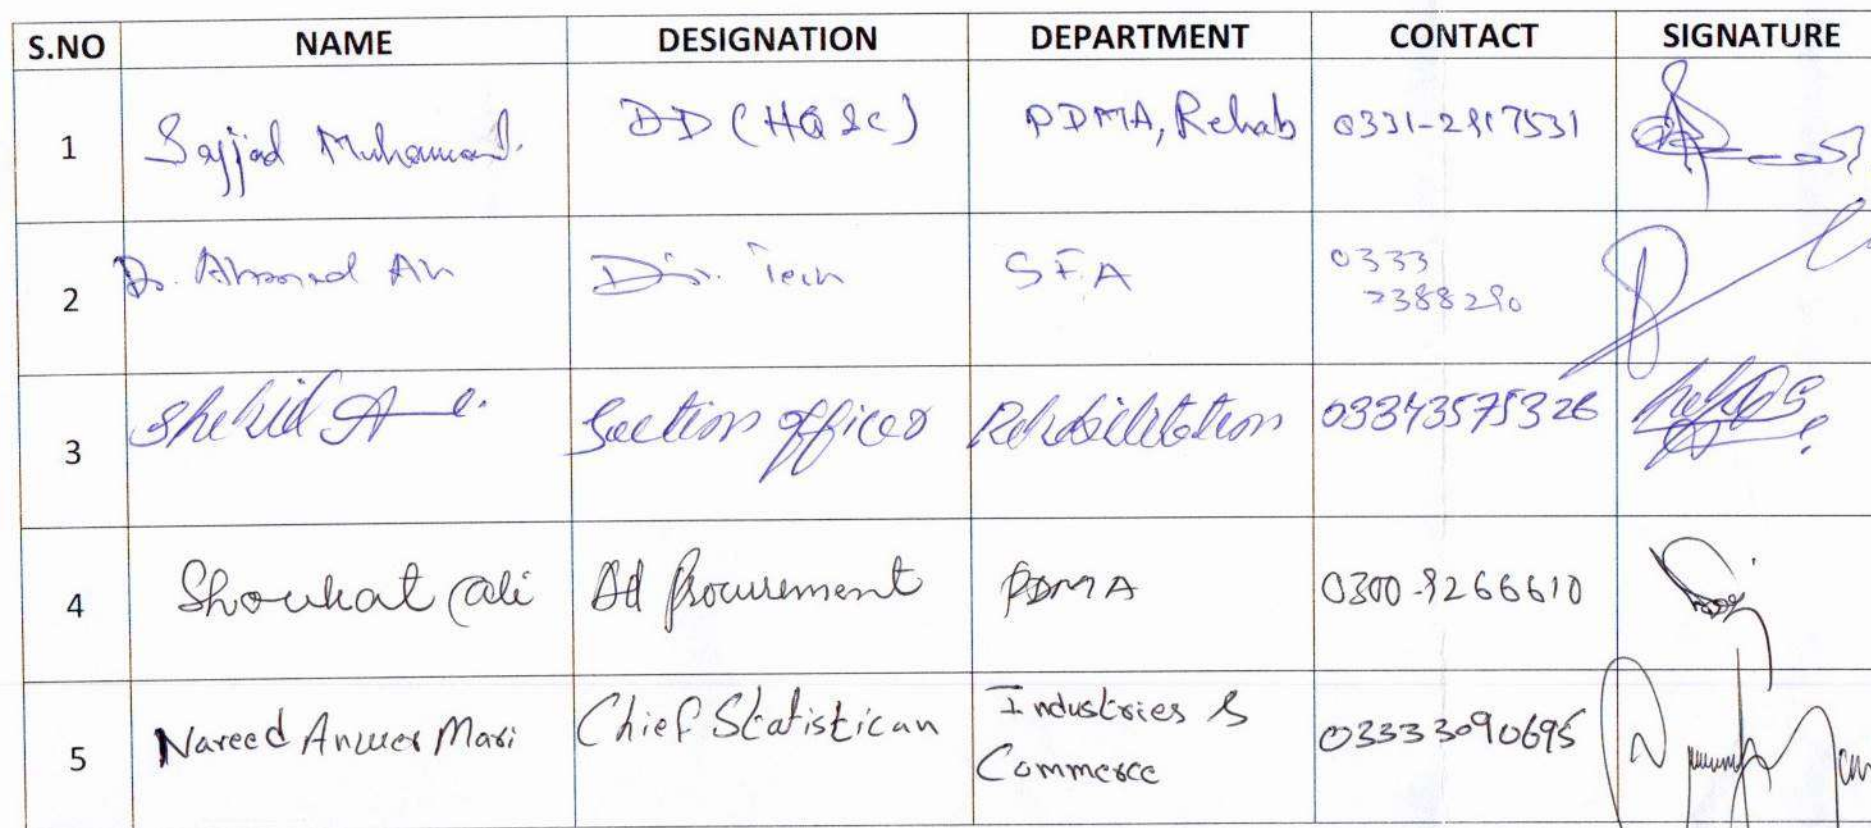 S.NO NAME DESIGNATION DEPARTMENT CONTACT SIGNATURE
1 Sajjad Muhammad. DD (HQ &c) PDMA, Rehab 0331-2917531
2 Dr. Ahmad Ali Dir. Tech S.F.A 0333
2388290
3 Shahid A Section officer Rehabilitation 03343575326
4 Shoukat Ali Ad Procurement PDMA 0300-9266610
5 Naveed Anwer Mari Chief Statistican Industries &
Commerce 03333090695